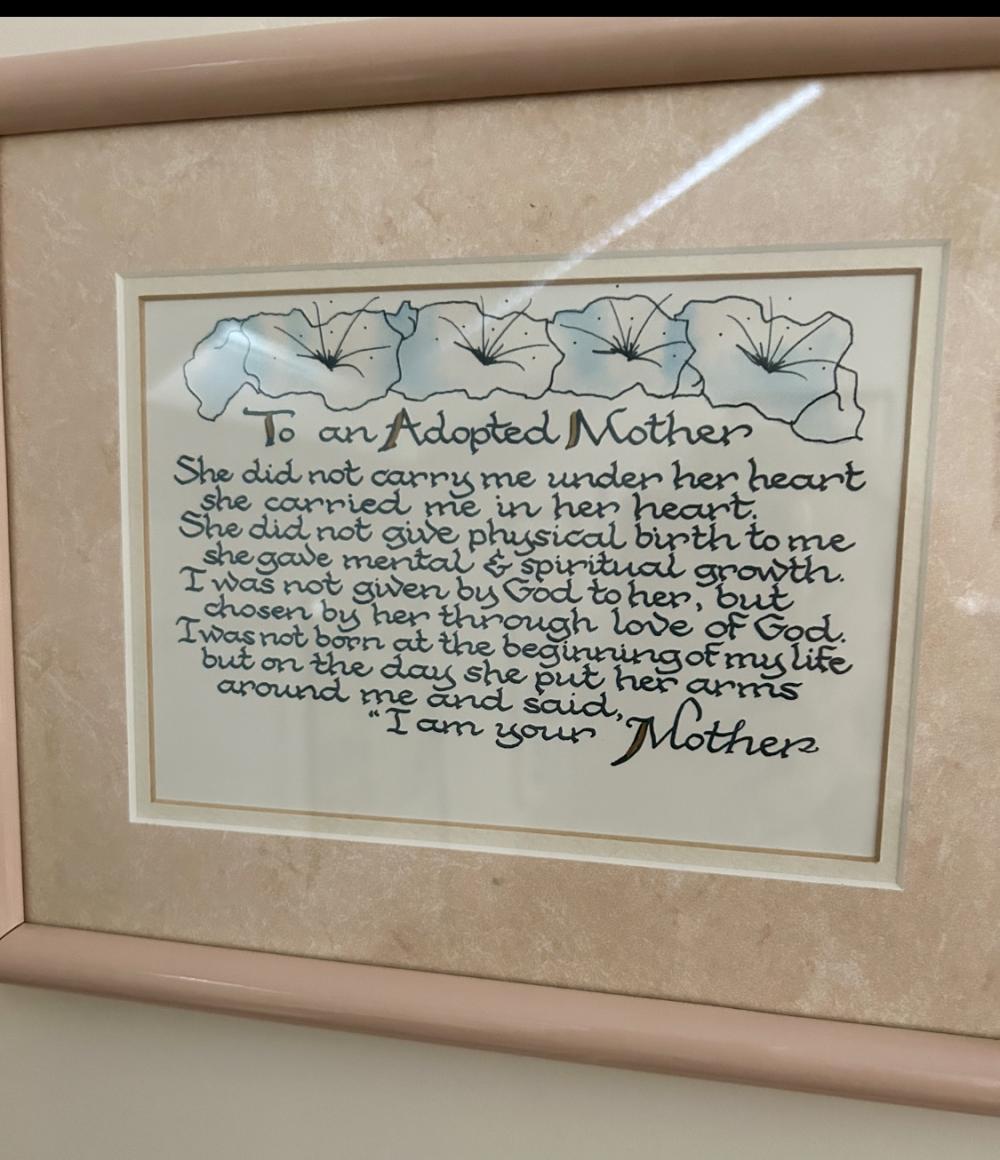 To an Adopted Mother
She did not carry me under her heart
she carried me in her heart.
She did not give physical birth to me
she gave mental & spiritual growth.
I was not given by God to her, but
chosen by her through love of God.
I was not born at the beginning of my life
but on the day she put her arms
around me and said,
"I am your Mother